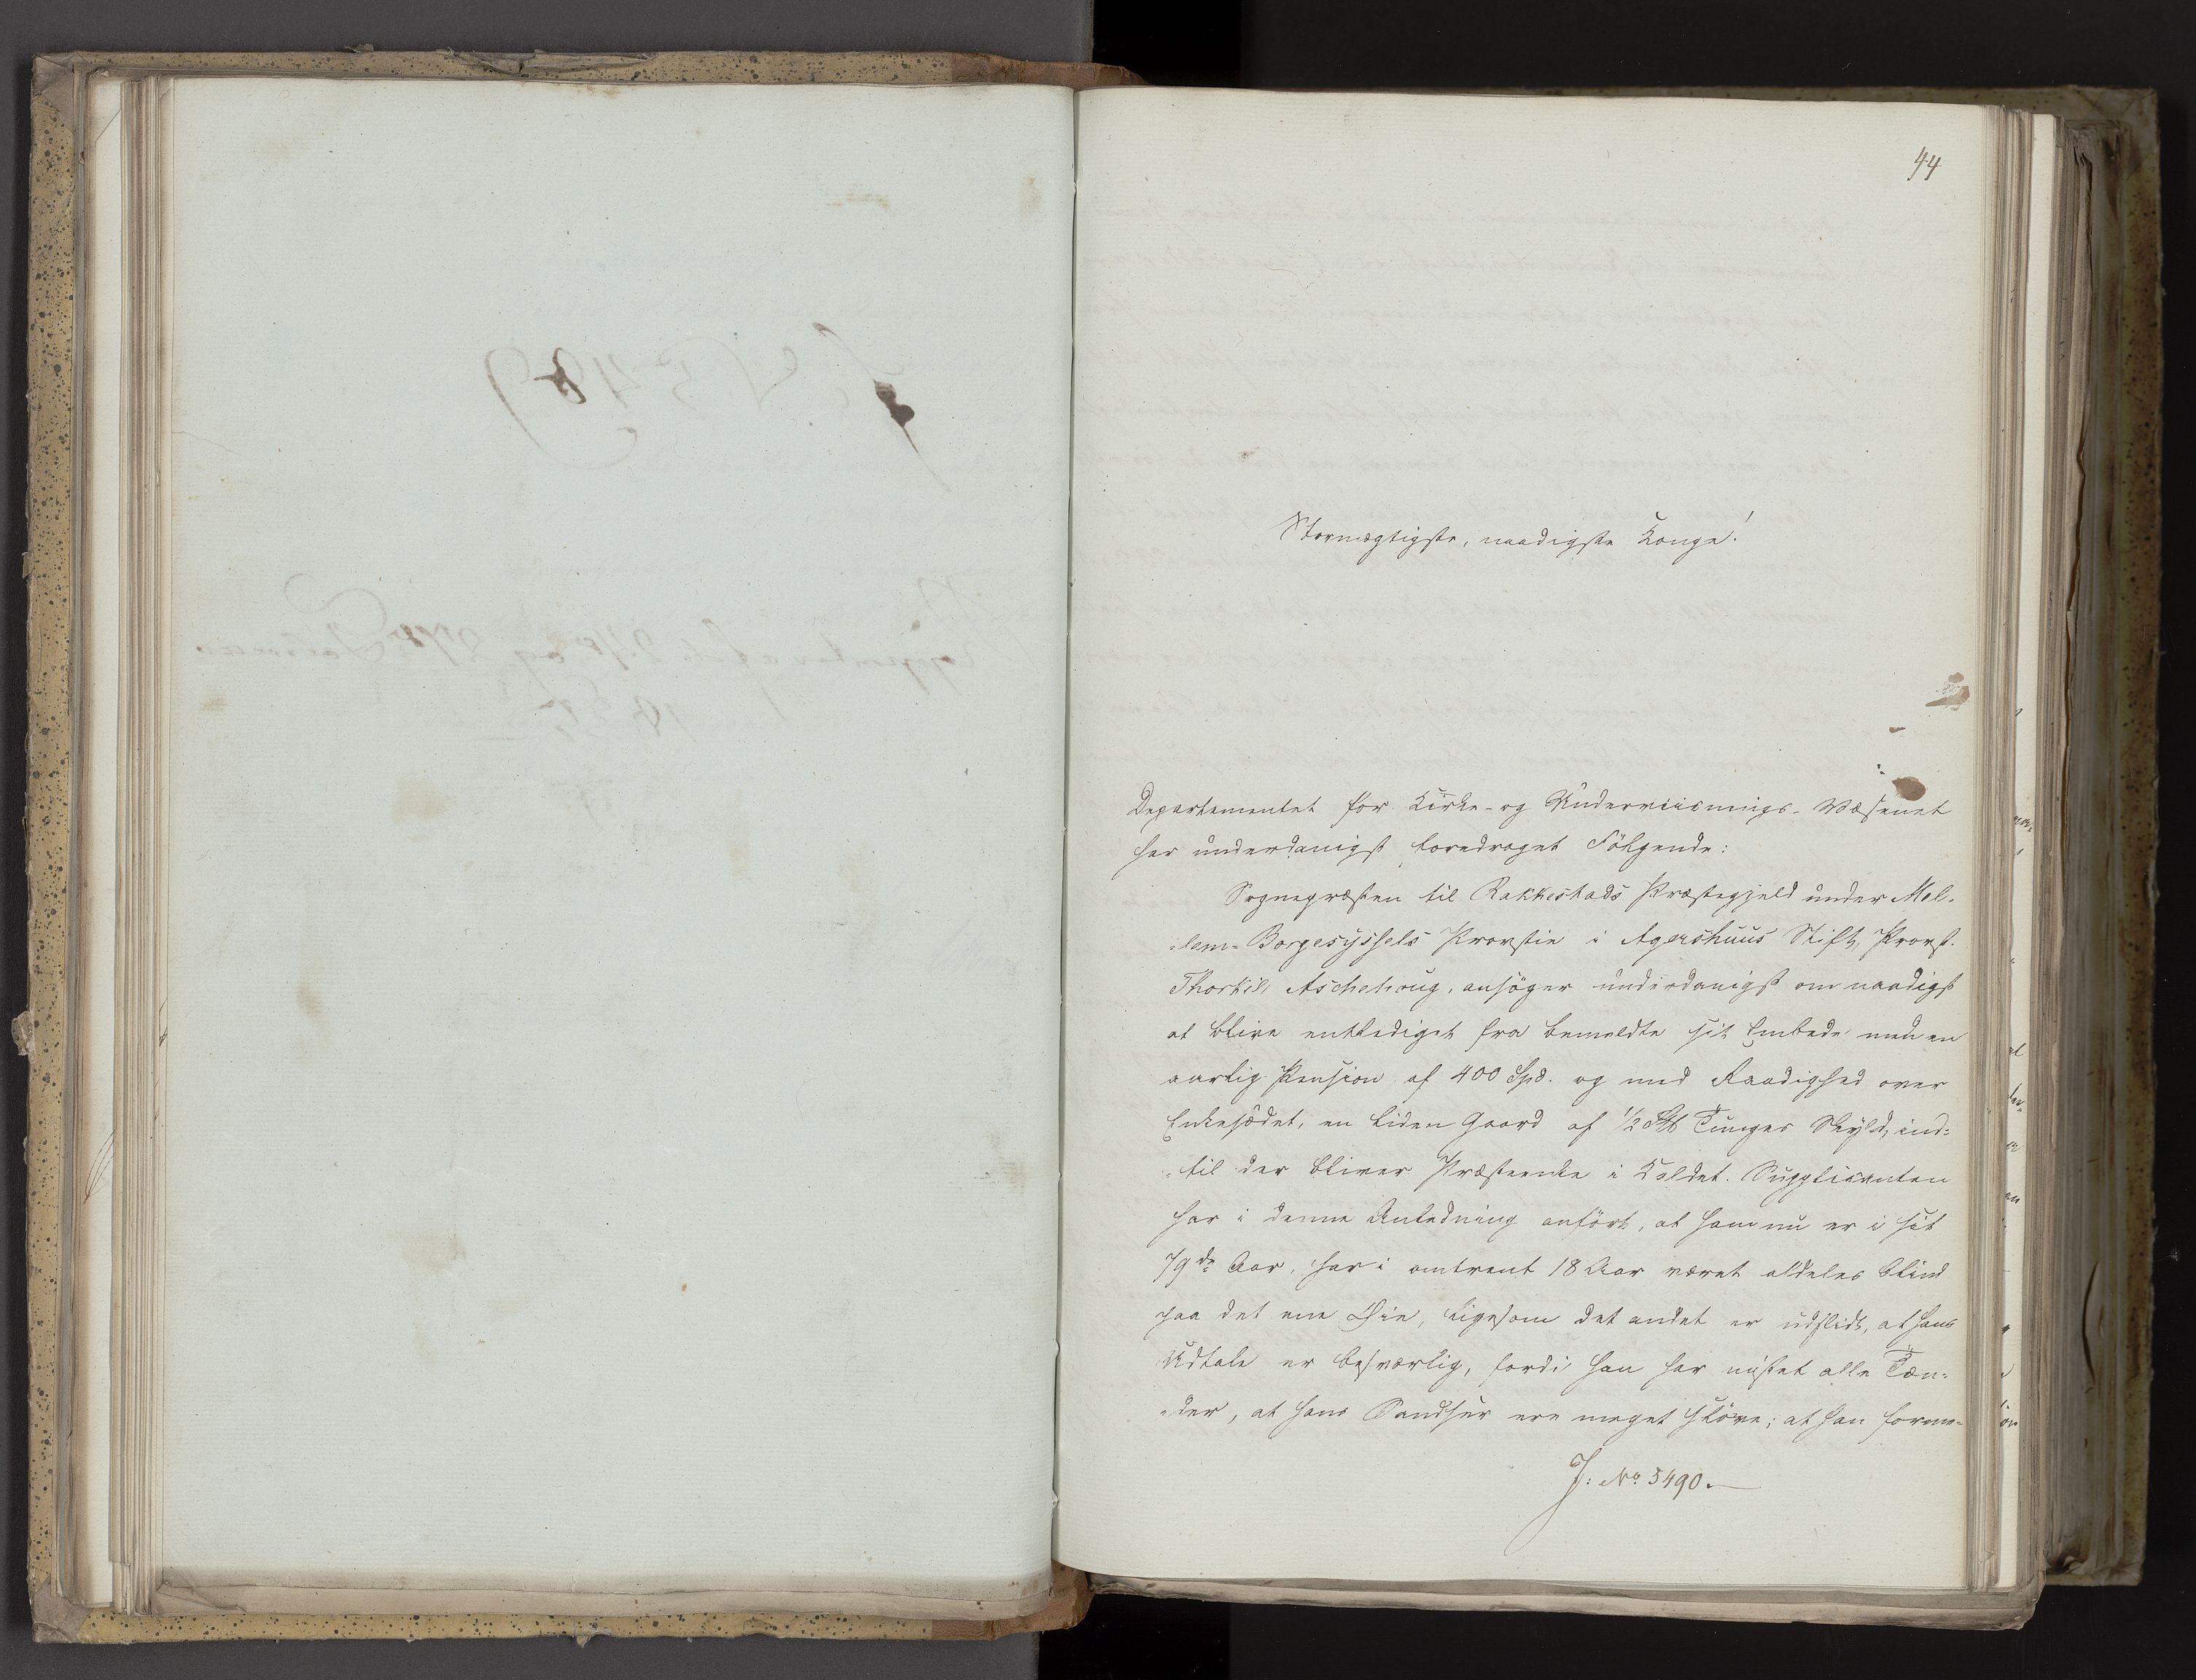 44
Stormægtigste, naadigste Konge!
Departementet for Kirke- og Underviisnings-Væsenet
har underdanigst foredraget Følgende:
Sognepræsten til Rakkestads Præstegjeld under Mel-
lem-Borgesyssels Provstie i Agershuus Stift, Provst
Thorkil Aschehoug, ansøger underdanigst om naadigst
at blive entlediget fra bemeldte sit Embede med en
aarlig Pension af 400 Spd. og med Raadighed over
Enkesædet, en liden Gaard af 1/2 Tunges Skyld, ind-
til der bliver Præsteenke i Kaldet. Supplicanten
har i denne Anledning anført, at han nu er i sit
79de Aar, har i omtrent 18 Aar været aldeles blind
paa det ene Øie, ligesom det andet er udslidt, at hans
Udtale er besværlig, fordi han har mistet alle Tæn-
der, at hans Sandser ere meget sløve; at han forme-
J: No 5490.